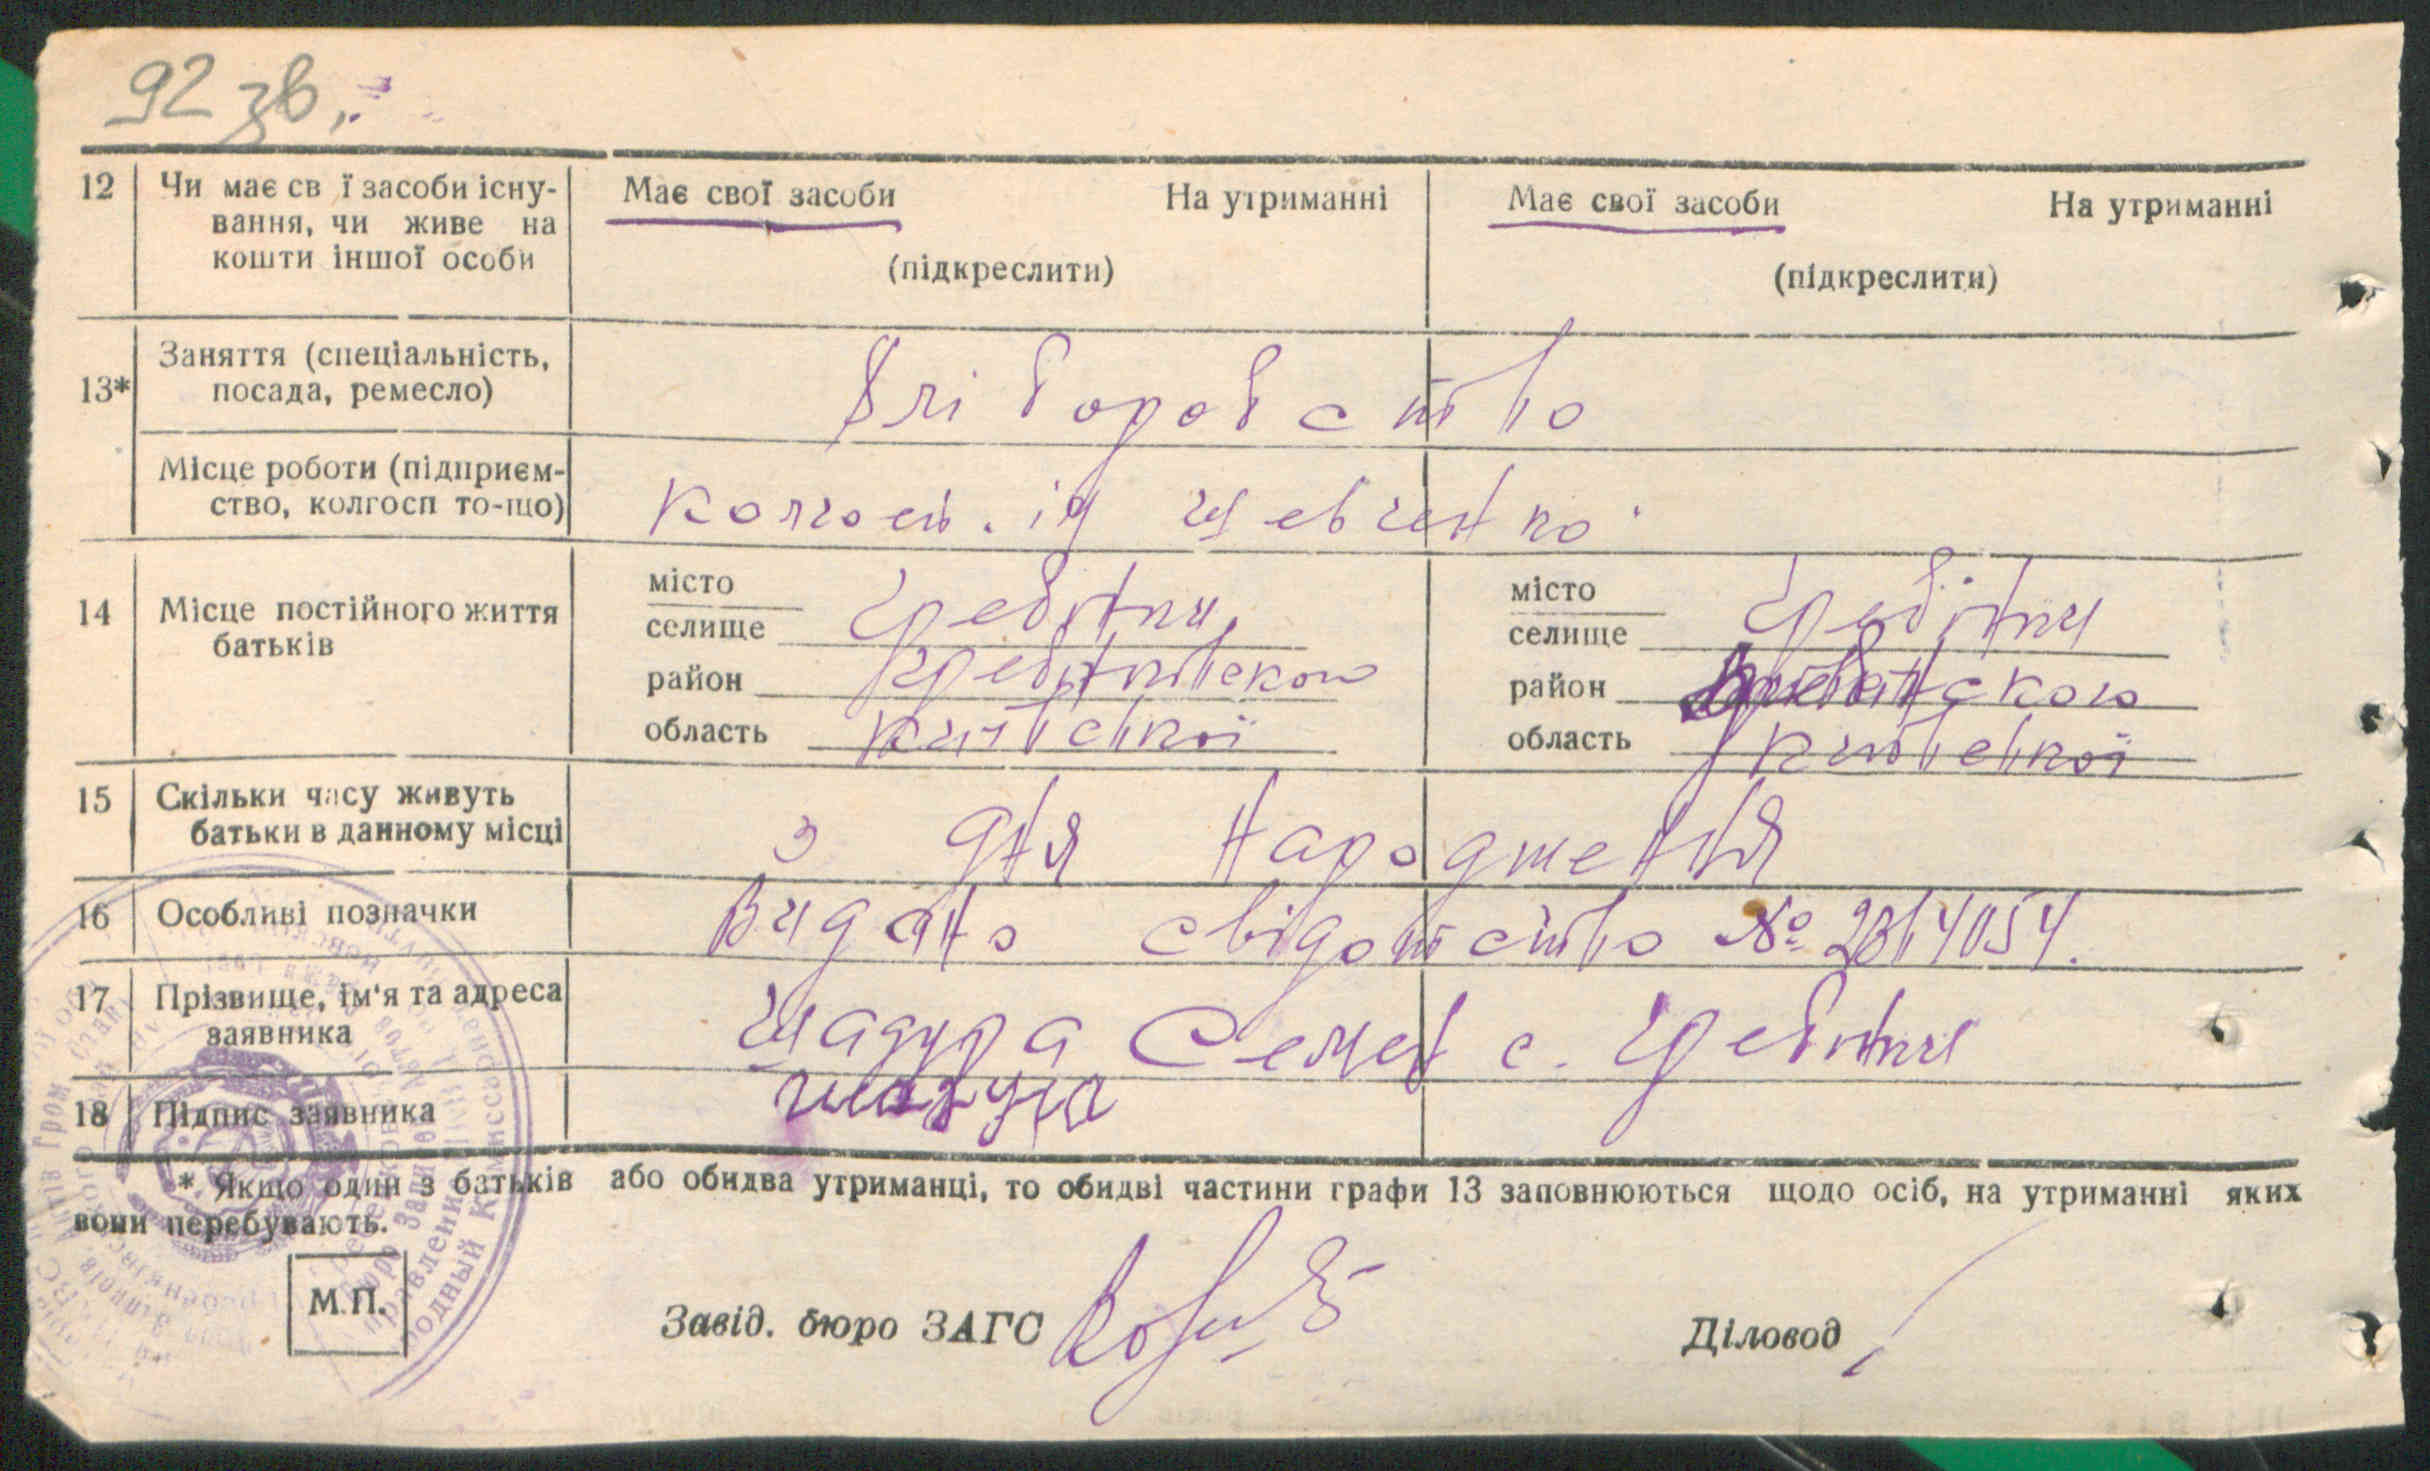 92 зв.
12 Чи має св ї засоби існу- Має свої засоби На утриманні Має свої засоби На утриманні
вання, чи живе на
кошти іншої особи (підкреслити) (підкреслити)
Заняття (спеціальність,
13* посада, ремесло) Хліборобство
Місце роботи (підприєм-
ство, колгосп то-що) колгосп. ім Шевченко
місто місто
14 Місце постійного життя селище Гребінки селище Гребінки
батьків район Гребінківського район
область Київської область Київської
15 Скільки часу живуть
батьки в данному місці з дня народження
16 Особливі позначки Видано свідотство №
17 Прізвище, ім'я та адреса Шадура Семен с. Гребінки
заявника
18 Підпис заявника Шадура
* Якщо один з батьків або обидва утриманці, то обидві частини графи 13 заповнюються щодо осіб, на утриманні яких
вони перебувають.
М.П.
Завід. бюро ЗАГС Діловод